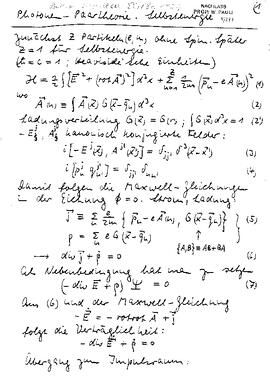 Photonen - Paartheorie. Selbstenergie
NACHLASS
PROF. W. PAULI
①
zunächst Z Partikeln (e, m), ohne Spin. Später
Z = 1 für Selbstenergie.
(ħ = c = 1; Heaviside'sche Einheiten)
ℋ = ½ ∫ { E⃗² + (rot A⃗)² } d³x + Σ 1/2m [p⃗ₙ - e A⃗(n)]² (1)
wo A⃗(n) = ∫ A⃗(x⃗) G(x⃗ - q⃗ₙ) d³x (2)
Ladungsverteilung G(x⃗) = G(r), ∫ G(x⃗) d³x = 1 (2')
kanonisch konjugierte Felder:
i[-Eʲ(x⃗), Aʲ'(x⃗')] = δⱼⱼ' δ³(x⃗ - x⃗') (3)
(4)
Damit folgen die Maxwell-Gleichungen
in der Eichung φ = 0. Strom, Ladung
J⃗ = Σ e/2m { p⃗ₙ - e A⃗(n), G(x⃗ - q⃗ₙ) } (5)
ρ = Σ e G(x⃗ - q⃗ₙ)
{A,B} = AB + BA
→ div J⃗ + ρ̇ = 0 (6)
Als Nebenbedingung hat man zu setzen
(- div E⃗ + ρ) Ψ = 0 (7)
Aus (6) und der Maxwell-Gleichung
- E⃗̇ = - rot rot A⃗ + J⃗
folgt die Verträglichkeit:
- div E⃗ + ρ = 0
Übergang zum Impulsraum: